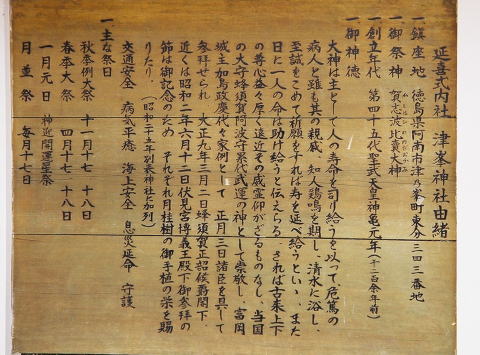 延喜式内社 津峯神社由緒
一鎮座地 徳島県阿南市津乃峯町東分三四三番地
一御祭神 賀志波比賣大神
一創立年代 第四十五代聖武天皇神亀元年(千二百余年前)
一御神徳
大神は主として人の寿命を司り給うを以って、危篤の
病人と雖も其の親戚 知人鶏鳴を期し、清水に浴し、
至誠をこめて祈願をすれば寿を延べ給うといい、また
日に一人の命は助け給うと伝えらる。されば古来上下
の尊心益々厚く遠近その感霊仰がざるものなし、当国
の大守蜂須賀阿波守累代武運の神として崇敬し、富岡
城主加島慶代々家例として 正月三日諸臣を具して
参拝せられ 大正九年三月二日蜂須賀正韶侯爵閣下、
近くは昭和二年六月十二日伏見宮博義王殿下御参拝の
節は御記念のため それぞれ月桂樹の御手植の栄を賜
りたり、(昭和二十五年別表神社に加列)
交通安全 病気平癒 海上安全 息災延命 守護
一主な祭日
秋季例大祭 十一月十七、十八日
春季大祭 四月十七、十八日
一月元日 神近開運星祭
月並祭 毎月十七日